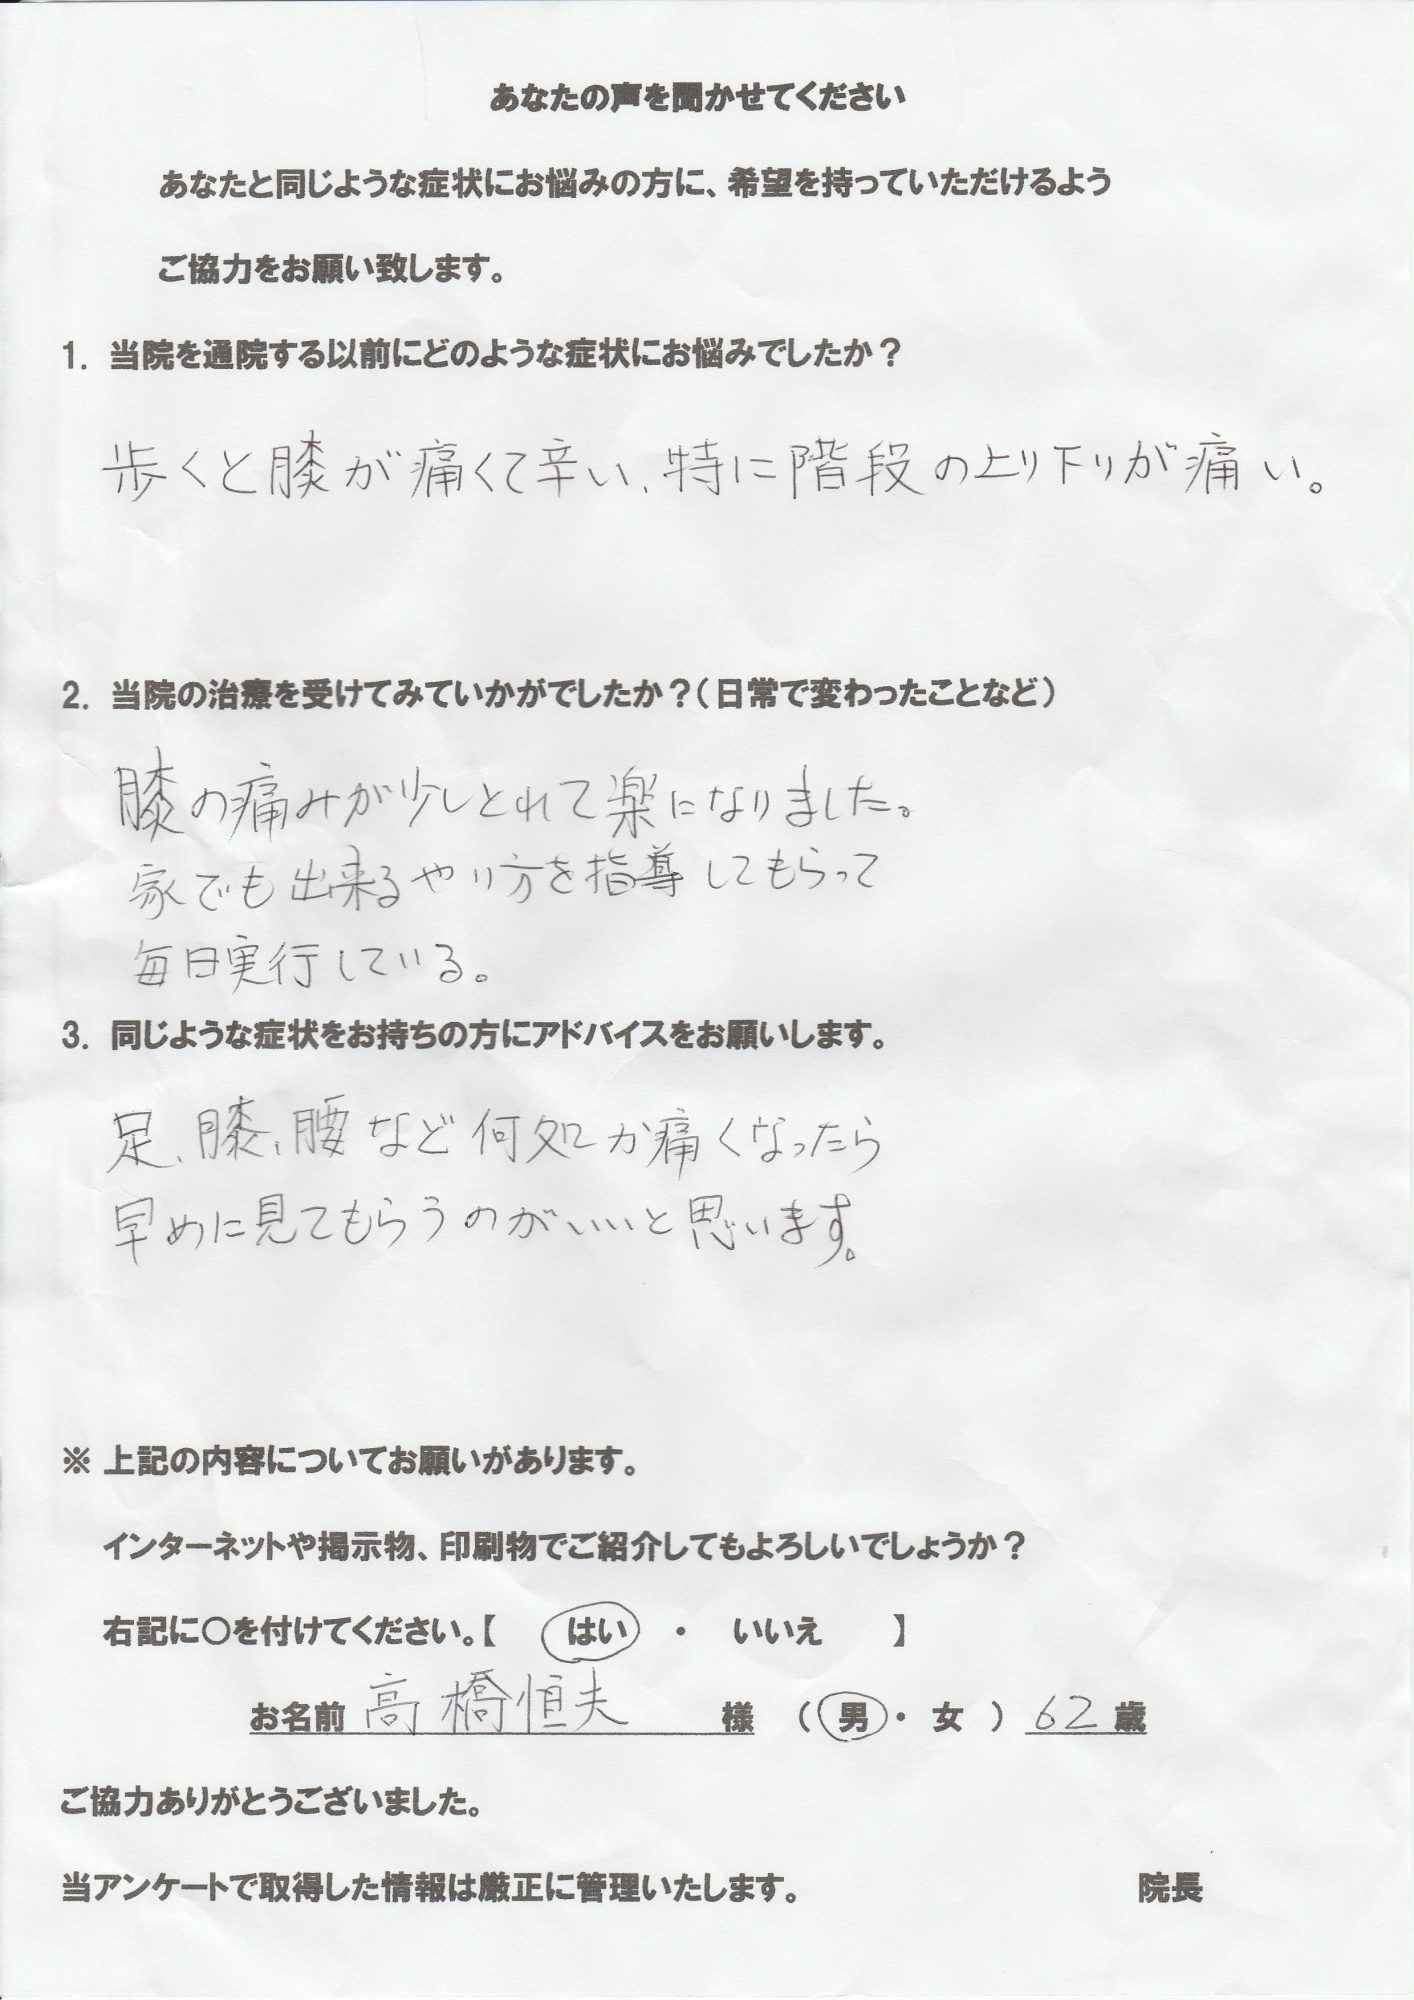 あなたの声を聞かせてください
あなたと同じような症状にお悩みの方に、希望を持っていただけるよう
ご協力をお願い致します。
1. 当院を通院する以前にどのような症状にお悩みでしたか？
歩くと膝が痛くて辛い、特に階段の上り下りが痛い。
2. 当院の治療を受けてみていかがでしたか？（日常で変わったことなど）
膝の痛みが少しとれて楽になりました。
家でも出来るやり方を指導してもらって
毎日実行している。
3. 同じような症状をお持ちの方にアドバイスをお願いします。
足、膝、腰など何処か痛くなったら
早めに見てもらうのがいいと思います。
※ 上記の内容についてお願いがあります。
インターネットや掲示物、印刷物でご紹介してもよろしいでしょうか？
右記に○を付けてください。【 はい ・ いいえ 】
お名前 高橋恒夫 様 （ 男 ・ 女 ） 62 歳
ご協力ありがとうございました。
当アンケートで取得した情報は厳正に管理いたします。 院長